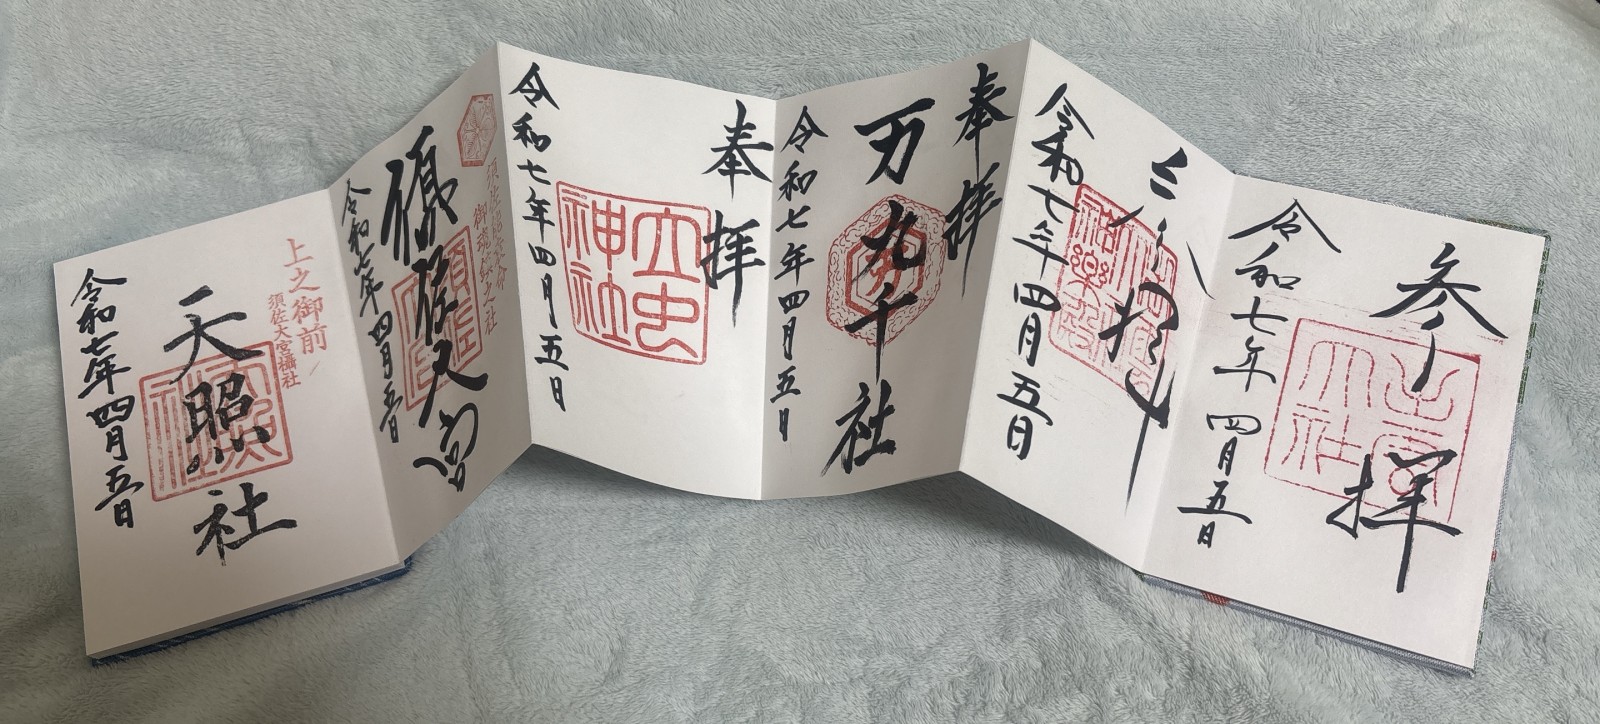 参拝
出雲大社
令和七年四月五日
参拝
神楽殿
令和七年四月五日
奉拝
万九千社
令和七年四月五日
奉拝
立虫神社
令和七年四月五日
須佐能袁命
御魂鎮之社
須佐大宮
令和七年四月五日
上之御前
須佐大宮攝社
天照社
令和七年四月五日